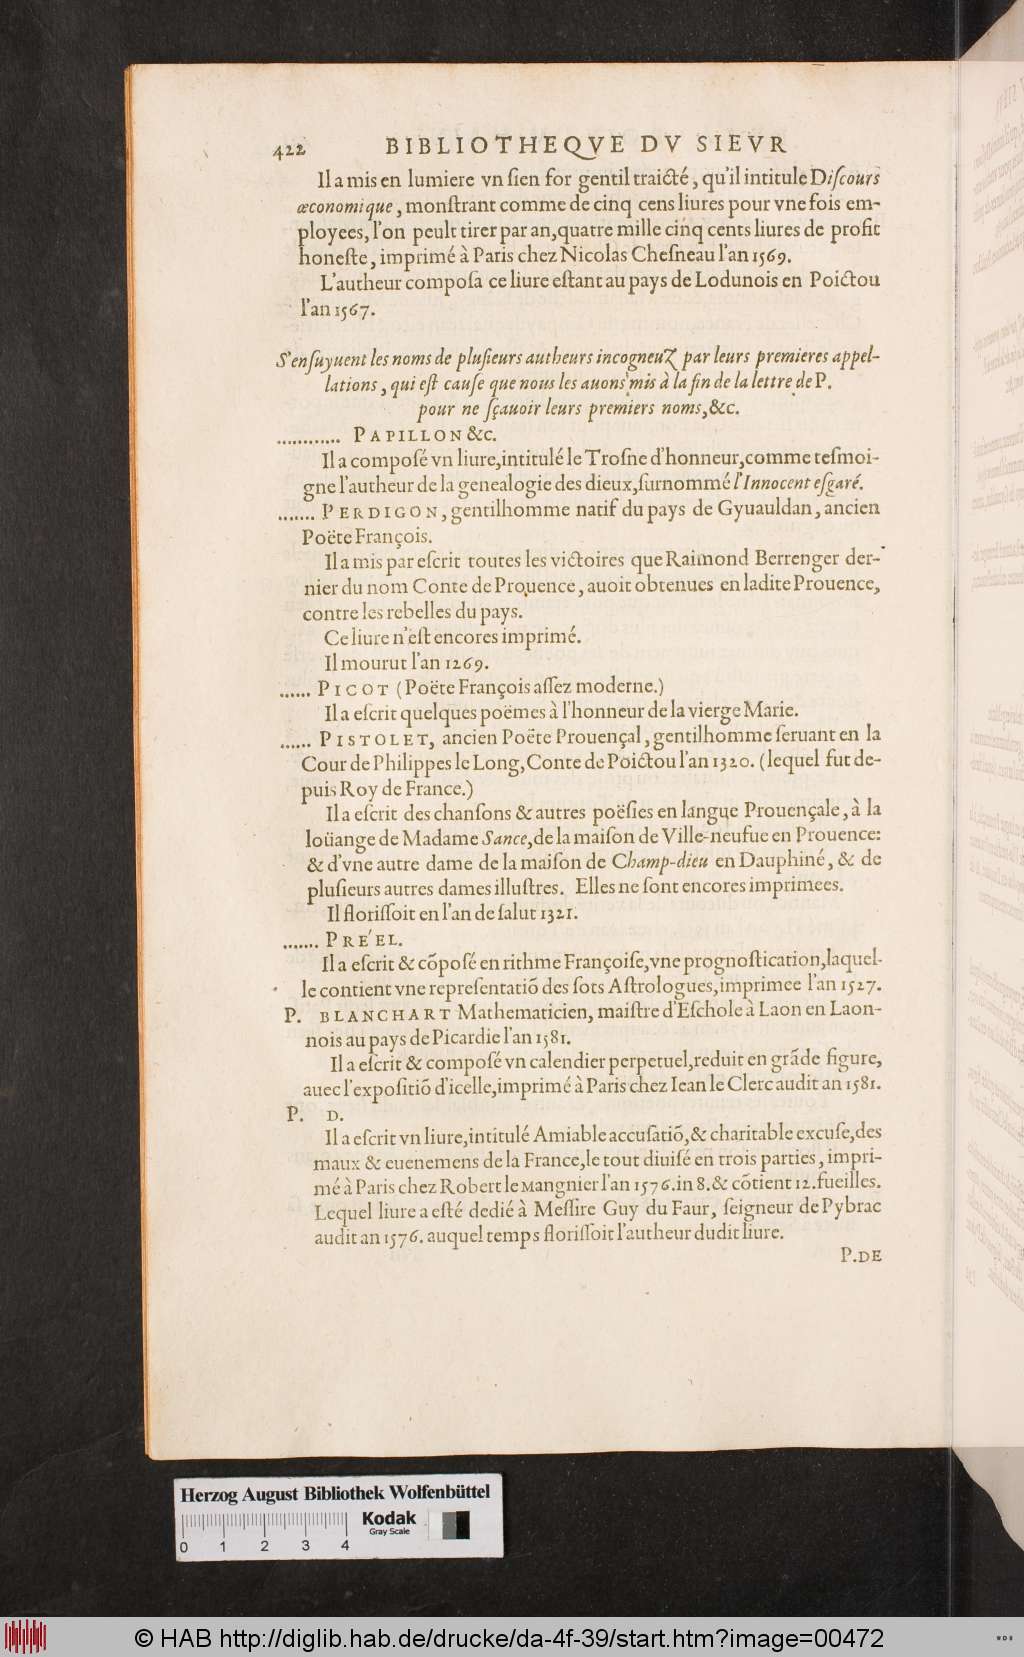 422 BIBLIOTHEQVE DV SIEVR
Il a mis en lumiere vn ſien for gentil traicté, qu'il intitule Diſcours
œconomique, monſtrant comme de cinq cens liures pour vne fois em-
ployees, l'on peult tirer par an, quatre mille cinq cents liures de profit
honeſte, imprimé à Paris chez Nicolas Cheſneau l'an 1569.
L'autheur compoſa ce liure eſtant au pays de Lodunois en Poictou
l'an 1567.
S'enſuyuent les noms de pluſieurs autheurs incogneuz par leurs premieres appel-
lations, qui eſt cauſe que nous les auons mis à la fin de la lettre de P.
pour ne ſçauoir leurs premiers noms, &c.
............ PAPILLON &c.
Il a compoſé vn liure, intitulé le Troſne d'honneur, comme teſmoi-
gne l'autheur de la genealogie des dieux, ſurnommé l'Innocent eſgaré.
....... PERDIGON, gentilhomme natif du pays de Gyuauldan, ancien
Poëte François.
Il a mis par eſcrit toutes les victoires que Raimond Berrenger der-
nier du nom Conte de Prouence, auoit obtenues en ladite Prouence,
contre les rebelles du pays.
Ce liure n'eſt encores imprimé.
Il mourut l'an 1269.
...... PICOT (Poëte François aſſez moderne.)
Il a eſcrit quelques poëmes à l'honneur de la vierge Marie.
...... PISTOLET, ancien Poëte Prouençal, gentilhomme ſeruant en la
Cour de Philippes le Long, Conte de Poictou l'an 1320. (lequel fut de-
puis Roy de France.)
Il a eſcrit des chanſons & autres poëſies en langue Prouençale, à la
loüange de Madame Sance, de la maiſon de Ville-neufue en Prouence:
& d'vne autre dame de la maiſon de Champ-dieu en Dauphiné, & de
pluſieurs autres dames illuſtres. Elles ne ſont encores imprimees.
Il floriſſoit en l'an de ſalut 1321.
....... PRE'EL.
Il a eſcrit & cõpoſé en rithme Françoiſe, vne prognoſtication, laquel-
le contient vne repreſentatiõ des ſots Aſtrologues, imprimee l'an 1527.
P. BLANCHART Mathematicien, maiſtre d'Eſchole à Laon en Laon-
nois au pays de Picardie l'an 1581.
Il a eſcrit & compoſé vn calendier perpetuel, reduit en grãde figure,
auec l'expoſitiõ d'icelle, imprimé à Paris chez Iean le Clerc audit an 1581.
P. D.
Il a eſcrit vn liure, intitulé Amiable accuſatiõ, & charitable excuſe, des
maux & euenemens de la France, le tout diuiſé en trois parties, impri-
mé à Paris chez Robert le Mangnier l'an 1576. in 8. & cõtient 12. fueilles.
Lequel liure a eſté dedié à Meſſire Guy du Faur, ſeigneur de Pybrac
audit an 1576. auquel temps floriſſoit l'autheur dudit liure.
P. DE
Herzog August Bibliothek Wolfenbüttel
Kodak
Gray Scale
0 1 2 3 4
© HAB http://diglib.hab.de/drucke/da-4f-39/start.htm?image=00472